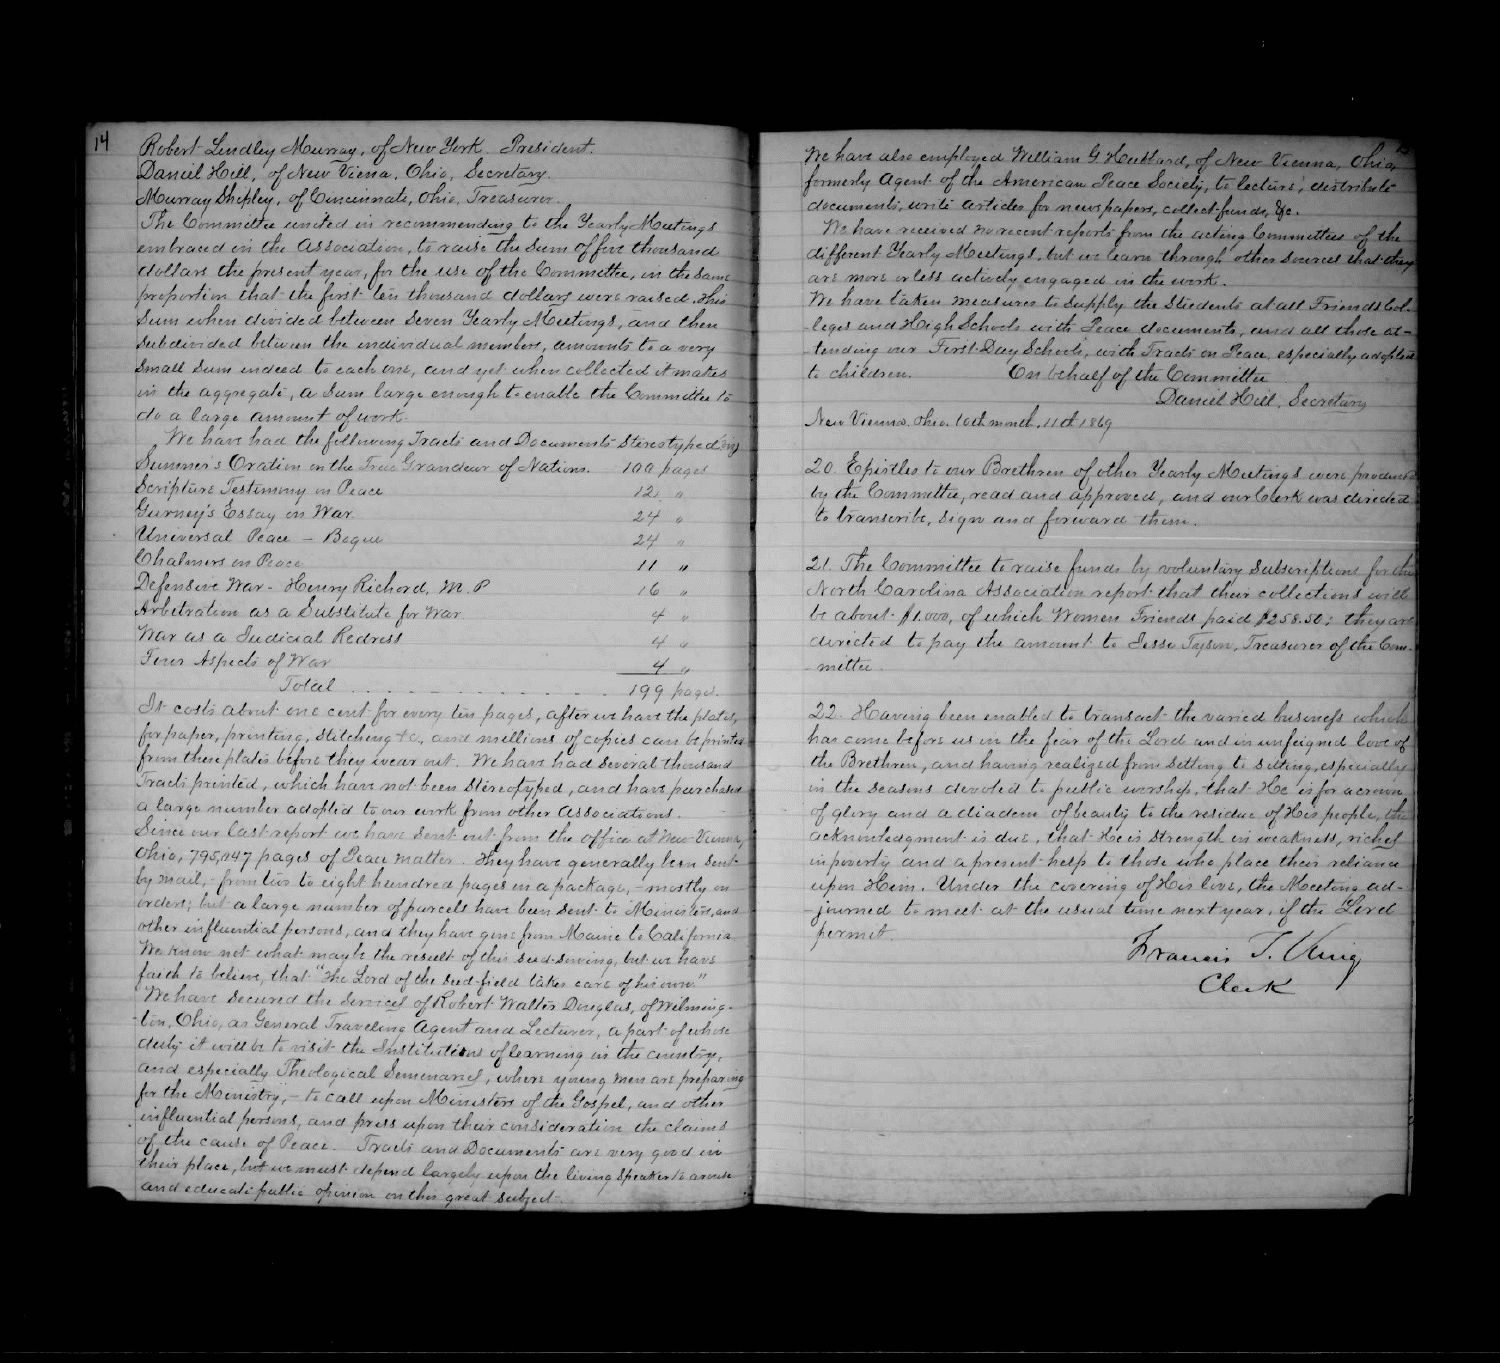 14
Robert Lindley Murray, of New York. President.
Daniel Hill, of New Viena, Ohio, Secretary.
Murray Shipley, of Cincinnate, Ohio, Treasurer.
The Committee united in recommending to the Yearly Meetings
embraced in the Association, to raise the sum of five thousand
dollars the present year, for the use of the Committee, in the same
proportion that the first ten thousand dollars were raised. This
sum when divided between seven Yearly Meetings, and then
subdivided between the individual members, amounts to a very
small sum indeed to each one, and yet when collected it makes
in the aggregate, a sum large enough to enable the Committee to
do a large amount of work.
We have had the following Tracts and Documents stereotyped, viz
Sumner's Oration on the True Grandeur of Nations. 100 pages
Scripture Testimony on Peace 12 "
Gurney's Essay on War 24 "
Universal Peace – Bogue 24 "
Chalmers on Peace 11 "
Defensive War - Henry Richord, M.P 16 "
Arbetration as a Substitute for War 4 "
War as a Judicial Redress 4 "
Four Aspects of War 4 "
Total . . . . . . . . . . . . . 199 pages.
It costs about one cent for every ten pages, after we have the plates,
for paper, printing, stitching &c., and millions of copies can be printed
from these plates before they wear out. We have had several thousand
Tracts printed, which have not been stereotyped, and have purchased
a large number adopted to our work from other Associations.
Since our last report we have sent out from the office at New Vienna,
Ohio, 795,047 pages of Peace matter. They have generally been sent
by mail, – from two to eight hundred pages in a package, – mostly on
orders; but a large number of parcels have been sent to Ministers, and
other influential persons, and they have gone from Maine to California.
We know not what may be the result of this seed-sowing, but we have
faith to believe, that "the Lord of the seed-field takes care of his own."
We have secured the services of Robert Walter Douglas, of Wilming-
-ton, Ohio, as General Traveling Agent and Lecturer, a part of whose
duty it will be to visit the Institutions of learning in the country,
and especially Theological Seminaries, where young men are preparing
for the Ministry, – to call upon Ministers of the Gospel, and other
influential persons, and press upon their consideration the claims
of the cause of Peace. Tracts and Documents are very good in
their place, but we must depend largely upon the living speaker to arouse
and educate public opinion on this great subject.
We have also employed William G Hubbard, of New Vienna, Ohio,
formerly Agent of the American Peace Society, to lecture, distribute
documents, write articles for newspapers, collect funds, &c.
We have received no recent reports from the acting Committees of the
different Yearly Meetings, but we learn through other sources that they
are more or less actively engaged in the work.
We have taken measures to supply the students at all Friends Col-
-leges and High Schools with Peace documents, and all those at-
-tending our First-Day Schools, with Tracts on Peace, especially adopted
to children. On behalf of the Committee
Daniel Hill, Secretary
New Vienna, Ohio. 10th month, 11th 1869
20. Epistles to our Brethren of other Yearly Meetings were produced
by the Committee, read and approved, and our Clerk was directed
to transcribe, sign and forward them.
21. The Committee to raise funds by voluntary subscriptions for the
North Carolina Association report that their collections will
be about $1.000, of which Women Friends paid $258.50; they are
directed to pay the amount to Jesse Tyson, Treasurer of the Com-
-mittee.
22. Having been enabled to transact the varied business which
has come before us in the fear of the Lord and in unfeigned love of
the Brethren, and having realized from sitting to sitting, especially
in the seasons devoted to public worship, that He is for a crown
of glory and a diadem of beauty to the residue of His people, the
acknowledgment is due, that He is strength in weakness, riches
in poverty and a present help to those who place their reliance
upon Him. Under the covering of His love, the Meeting ad-
-journed to meet at the usual time next year, if the Lord
permit.
Francis T. King
Clerk